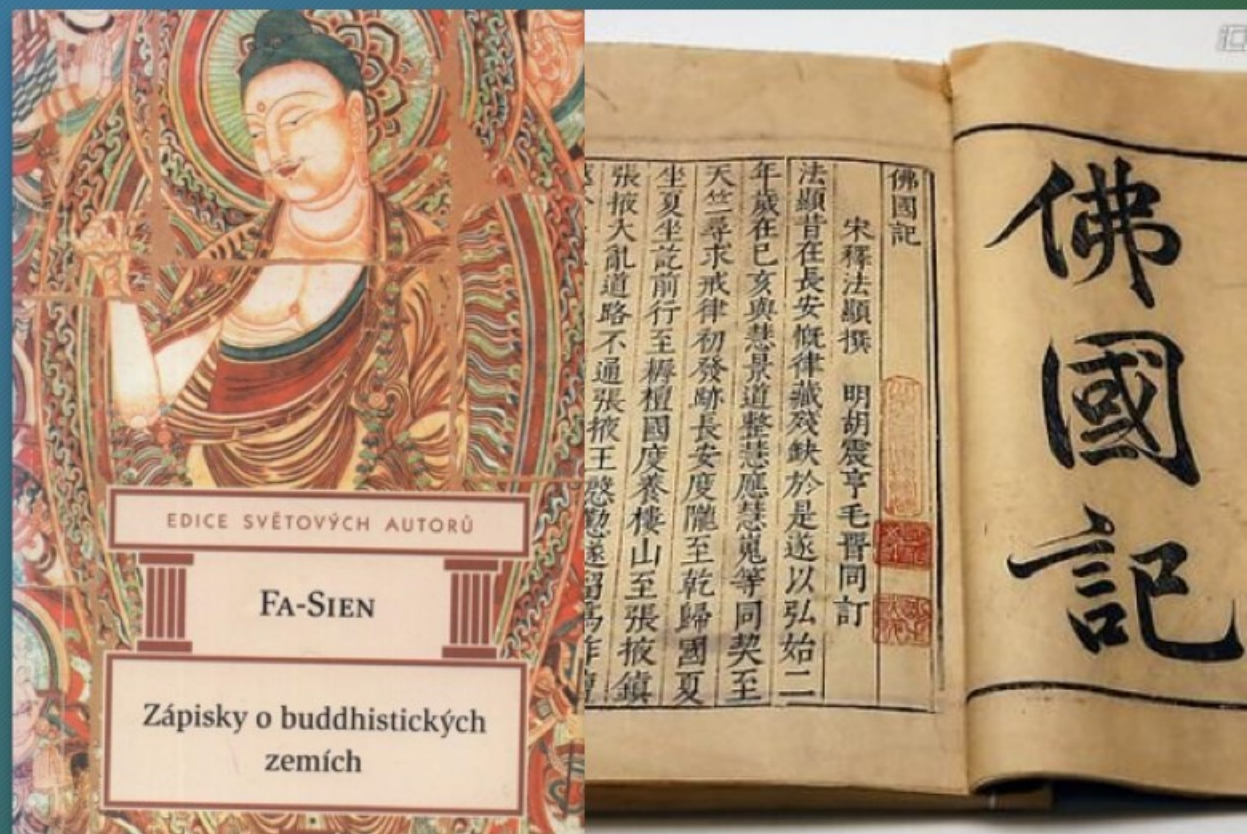 EDICE SVĚTOVÝCH AUTORŮ
FA-SIEN
Zápisky o buddhistických
zemích
佛國記
佛國記
宋釋法顯撰 明胡震亨毛晉同訂
法顯昔在長安慨律藏殘缺於是遂以弘始二
年歲在己亥與慧景道整慧應慧嵬等同契至
天竺尋求戒律初發跡長安度隴至乾歸國夏
坐夏坐訖前行至褥檀國度養樓山至張掖鎮
張掖大亂道路不通張掖王慇懃遂留爲作檀